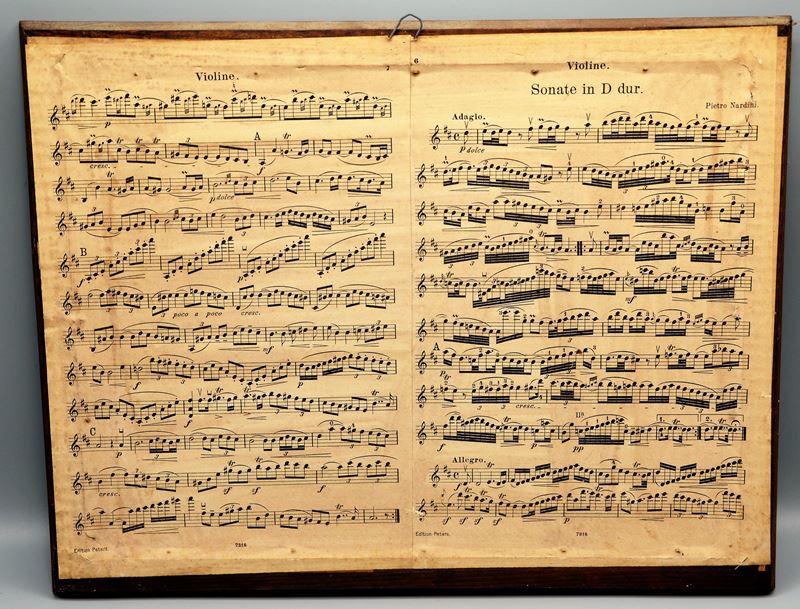 7
Violine.
p
cresc.
A
f
p dolce
B
f
p
poco a poco cresc.
mf
f
p
f
C
p
f
cresc.
sf
Edition Peters.
7318
6
Violine.
Sonate in D dur.
Pietro Nardini.
Adagio.
p dolce
mf
A
p
cresc.
f
p
pp
1.
2.
Allegro.
f
sf sf sf
p
Edition Peters.